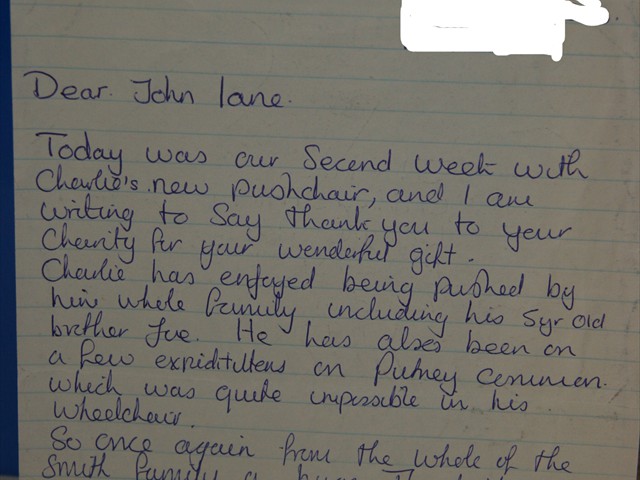 Dear John lane.
Today was our Second week with
Charlie's new pushchair, and I am
writing to say thank you to your
Charity for your wonderful gift.
Charlie has enjoyed being pushed by
his whole family including his 5yr old
brother Joe. He has also been on
a few expiditions on Putney Common.
which was quite impossible in his
wheelchair.
So once again from the whole of the
Smith family a huge